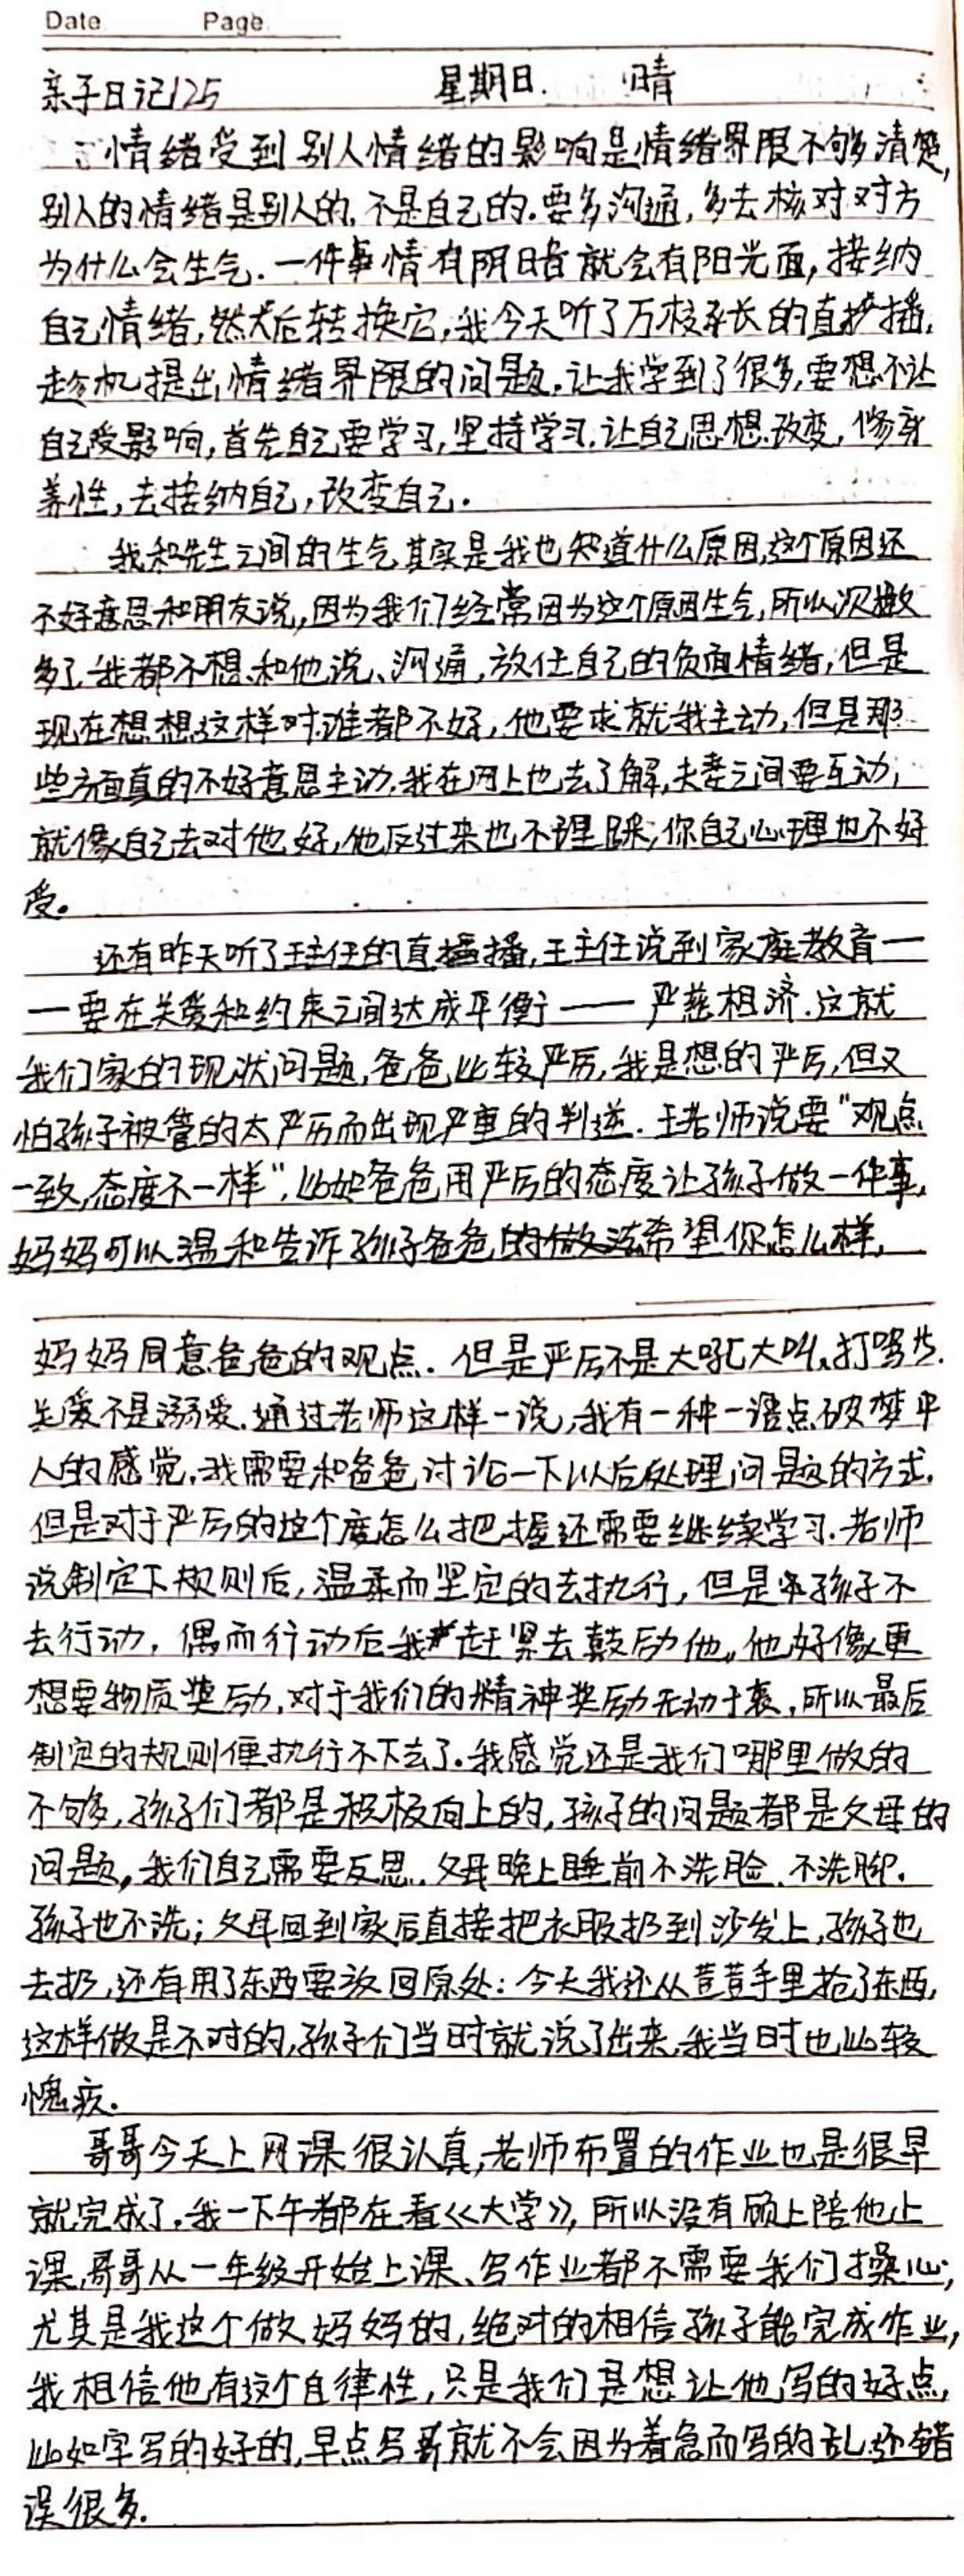 Date Page
亲子日记125 星期日. 晴
情绪受到别人情绪的影响是情绪界限不够清楚,
别人的情绪是别人的,不是自己的.要多沟通,多去核对对方
为什么会生气.一件事情有阴暗就会有阳光面,接纳
自己情绪,然后转换它,我今天听了万校长的直播,
趁机提出情绪界限的问题.让我学到了很多,要想不让
自己受影响,首先自己要学习,坚持学习.让自己思想改变,修身
养性,去接纳自己,改变自己.
我和先生之间的生气其实是我也知道什么原因,这个原因还
不好意思和朋友说,因为我们经常因为这个原因生气,所以次数
多了我都不想和他说、沟通,放任自己的负面情绪,但是
现在想想这样对谁都不好,他要求就我主动,但是那
些方面真的不好意思主动.我在网上也去了解,夫妻之间要互动,
就像自己去对他好,他反过来也不理睬,你自己心理也不好
受。
还有昨天听了王主任的直播,王主任说到家庭教育一
一要在关爱和约束之间达成平衡——严慈相济.这就
我们家的现状问题,爸爸比较严厉,我是想的严厉,但又
怕孩子被管的太严厉而出现严重的判逆.王老师说要"观点
一致,态度不一样",比如爸爸用严厉的态度让孩子做一件事,
妈妈可以温和告诉孩子爸爸的做法希望你怎么样,
妈妈同意爸爸的观点.但是严厉不是大吼大叫、打骂.
关爱不是溺爱.通过老师这样一说,我有一种一语点破梦中
人的感觉,我需要和爸爸讨论一下以后处理问题的方式.
但是对于严厉的这个度怎么把握还需要继续学习.老师
说制定下规则后,温柔而坚定的去执行,但是孩子不
去行动,偶而行动后我赶紧去鼓励他,他好像更
想要物质奖励,对于我们的精神奖励无动于衷,所以最后
制定的规则便执行不下去了.我感觉还是我们哪里做的
不够,孩子们都是积极向上的,孩子的问题都是父母的
问题,我们自己需要反思.父母晚上睡前不洗脸、不洗脚.
孩子也不洗;父母回到家后直接把衣服扔到沙发上,孩子也
去扔,还有用了东西要放回原处:今天我还从萱萱手里抢了东西,
这样做是不对的,孩子们当时就说了出来,我当时也比较
愧疚.
哥哥今天上网课很认真,老师布置的作业也是很早
就完成了.我一下午都在看《大学》,所以没有顾上陪他上
课,哥哥从一年级开始上课、写作业都不需要我们操心;
尤其是我这个做妈妈的,绝对的相信孩子能完成作业,
我相信他有这个自律性,只是我们是想让他写的好点,
比如字写的好的,早点写就不会因为着急而写的乱,还错
误很多.